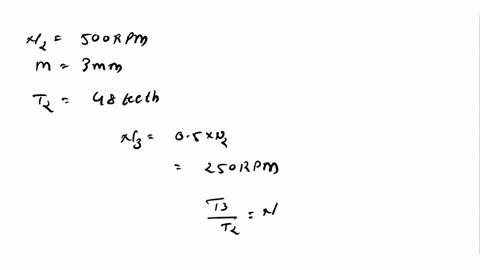 N2 = 500RPM
m = 3mm
T2 = 48 teeth
N3 = 0.5×N2
= 250RPM
T3/T2 = N